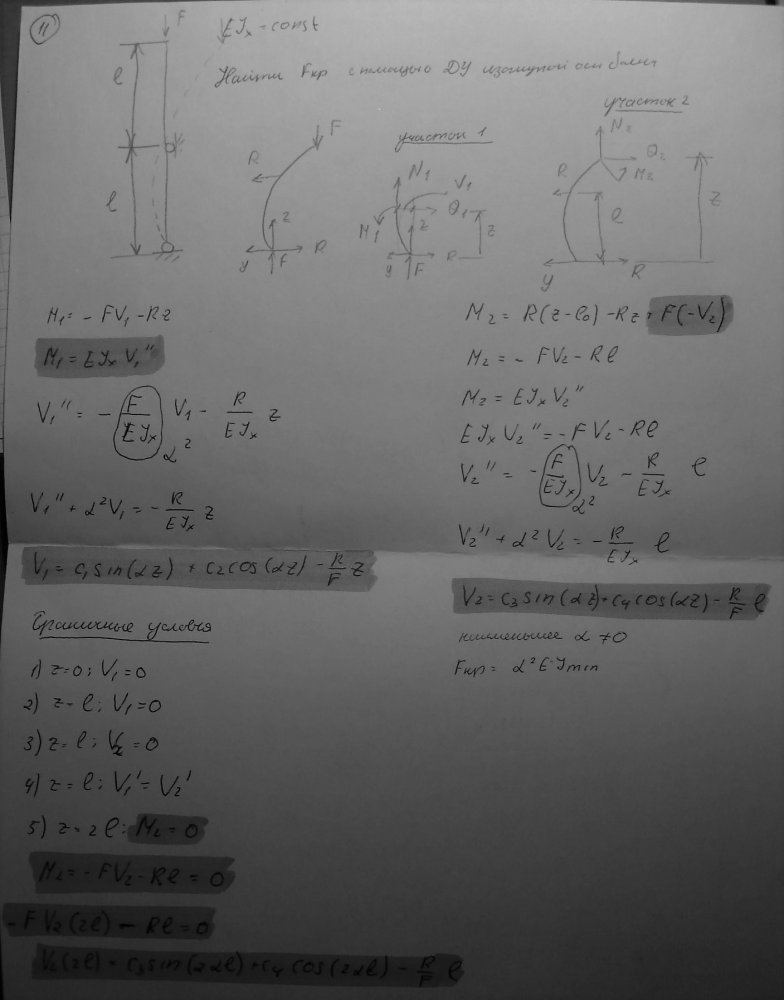 11
F
EJx = const
Найти Fкр с помощью ДУ изогнутой оси балки
l
l
F
R
z
y
F
R
участок 1
N1
V1
M1
Q1
z
z
y
F
R
участок 2
N2
Q2
M2
R
l
z
y
R
M1 = - FV1 - Rz
M1 = EJx V1''
V1'' = - F/EJx V1 - R/EJx z
α²
V1'' + α²V1 = - R/EJx z
V1 = c1 sin(αz) + c2 cos(αz) - R/F z
Граничные условия
1) z=0; V1=0
2) z=l; V1=0
3) z=l; V2=0
4) z=l; V1'=V2'
5) z=2l: M2=0
M2 = - FV2 - Rl = 0
- FV2(2l) - Rl = 0
V2(2l) = c3 sin(2αl) + c4 cos(2αl) - R/F l
M2 = R(z-l0) - Rz + F(-V2)
M2 = - FV2 - Rl
M2 = EJx V2''
EJx V2'' = - FV2 - Rl
V2'' = - F/EJx V2 - R/EJx l
α²
V2'' + α² V2 = - R/EJx l
V2 = c3 sin(αz) + c4 cos(αz) - R/F l
наименьшее α ≠0
Fкр = α²EJmin